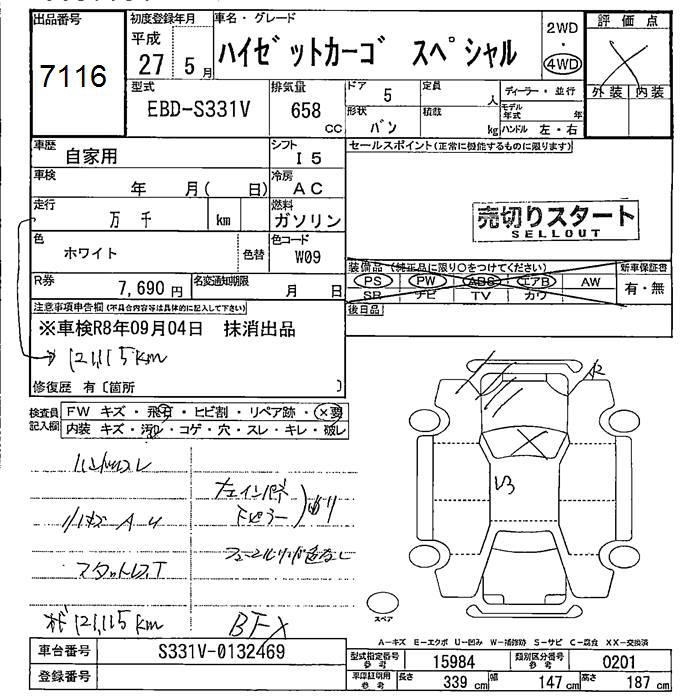 出品番号 初度登録年月 車名・グレード 評価点
7116 平成 27 5月 ハイゼットカーゴ スペシャル 2WD・4WD
型式 排気量 ドア 定員 ディーラー・並行 外装 内装
EBD-S331V 658 CC 5 人 モデル年式 年
形状 バン 積載 kg ハンドル 左・右
車歴 自家用 シフト I5 セールスポイント(正常に機能するものに限ります)
車検 年 月( 日) 冷房 AC
走行 万 千 km 燃料 ガソリン 売切りスタート
SELLOUT
色 ホワイト 色替 色コード W09
装備品(純正品に限り○をつけてください) 新車保証書
R券 7,690円 名変通知期限 月 日 PS PW ABS エアB AW 有・無
SR ナビ TV カワ
注意事項申告欄(不具合内容等は具体的に記入して下さい) 後日品
※車検R8年09月04日 抹消出品
→121,115km
修復歴 有〔箇所 〕
検査員記入欄 FW キズ・飛石・ヒビ割・リペア跡・×要
内装 キズ・汚れ・コゲ・穴・スレ・キレ・破レ
ハンドルスレ
小キズ A U
スタットレスT
121,115km
BFX
A2
U3
スペア
A-キズ E-エクボ U-凹み W-補修跡 S-サビ C-腐食 XX-交換済
車台番号 S331V-0132469 型式指定番号 参考 15984 類別区分番号 参考 0201
登録番号 車両証明用 参考 長さ 339cm 幅 147cm 高さ 187cm